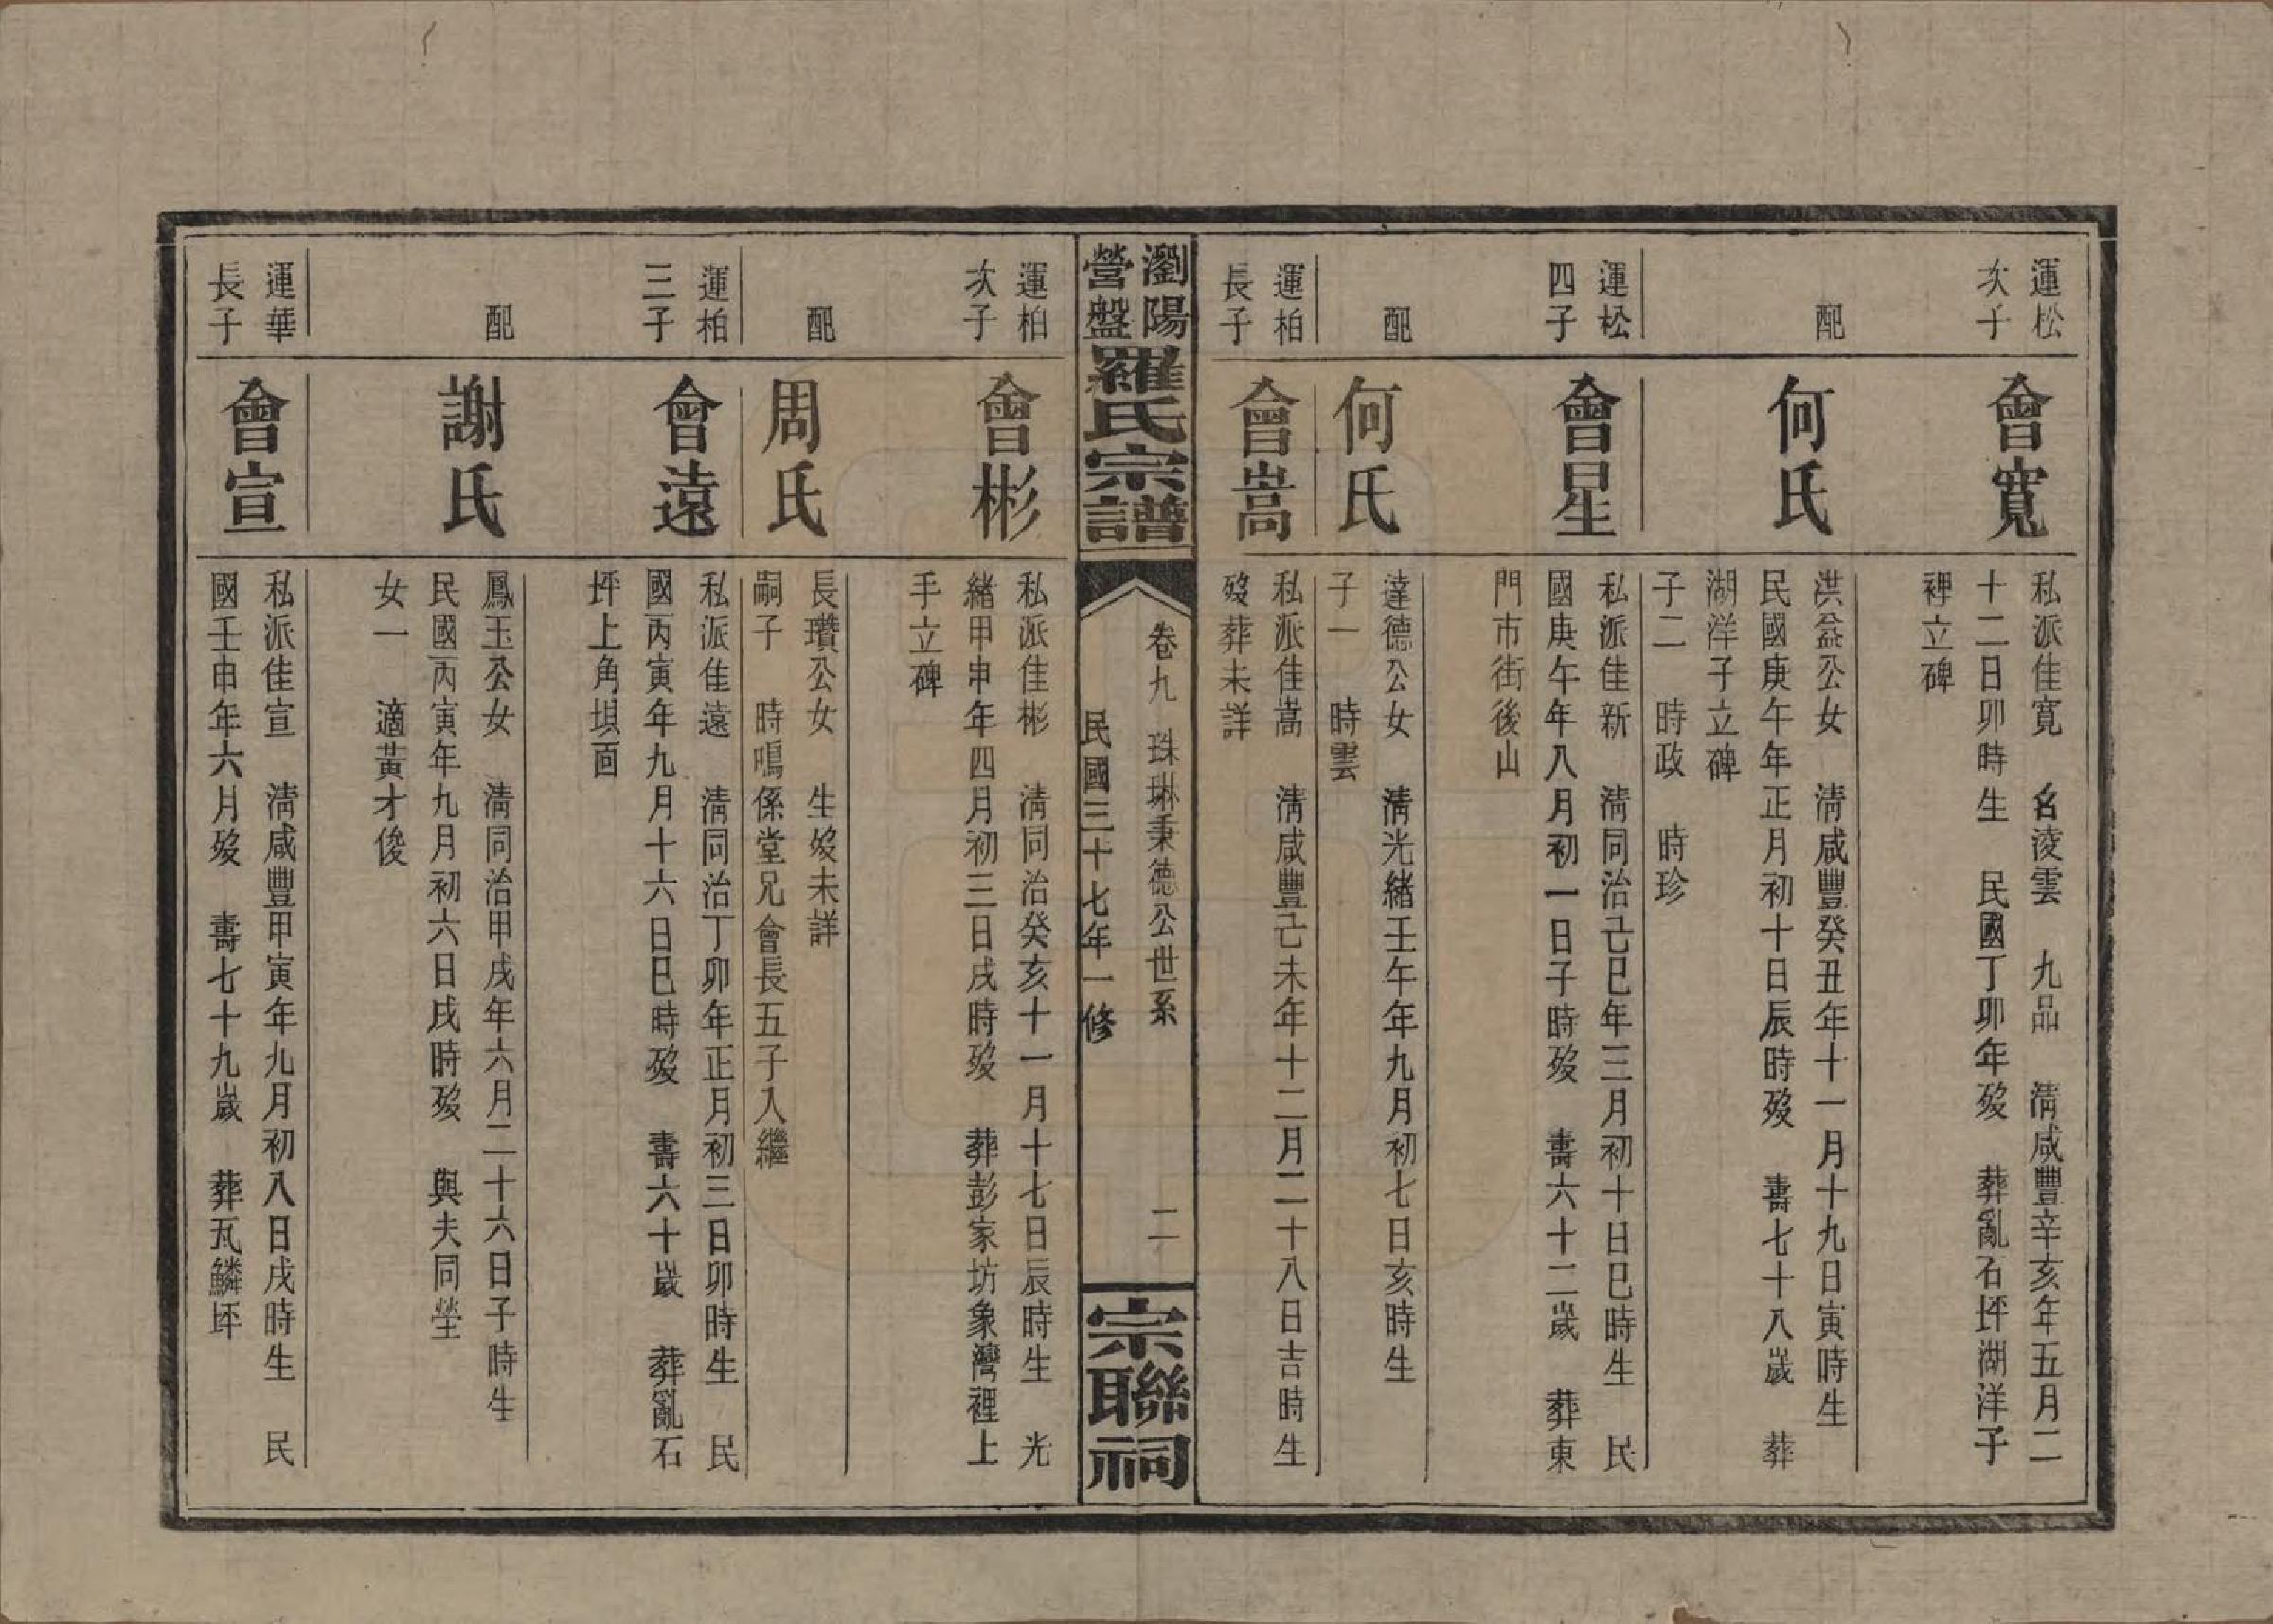 運松
次子
會寬
私派佳寬　名淩雲　九品　清咸豐辛亥年五月二
十二日卯時生　民國丁卯年歿　葬亂石坪湖洋子
裡立碑
配
何氏
洪益公女　清咸豐癸丑年十一月十九日寅時生
民國庚午年正月初十日辰時歿　壽七十八歲　葬
湖洋子立碑
子二　時政　時珍
運松
四子
會星
私派佳新　清同治己巳年三月初十日巳時生　民
國庚午年八月初一日子時歿　壽六十二歲　葬東
門市街後山
配
何氏
達德公女　清光緒壬午年九月初七日亥時生
子一　時雲
運柏
長子
會嵩
私派佳嵩　清咸豐己未年十二月二十八日吉時生
歿葬未詳
瀏陽
營盤
羅氏宗譜
卷九　珠琳秉德公世系　二
民國三十七年一修
宗聯祠
運柏
次子
會彬
私派佳彬　清同治癸亥十一月十七日辰時生　光
緒甲申年四月初三日戌時歿　葬彭家坊象灣裡上
手立碑
配
周氏
長瓚公女　生歿未詳
嗣子　時鳴係堂兄會長五子入繼
運柏
三子
會遠
私派佳遠　清同治丁卯年正月初三日卯時生　民
國丙寅年九月十六日巳時歿　壽六十歲　葬亂石
坪上角垻面
配
謝氏
鳳玉公女　清同治甲戌年六月二十六日子時生
民國丙寅年九月初六日戌時歿　與夫同塋
女一　適黃才俊
運華
長子
會宣
私派佳宣　清咸豐甲寅年九月初八日戌時生　民
國壬申年六月歿　壽七十九歲　葬瓦鱗坪